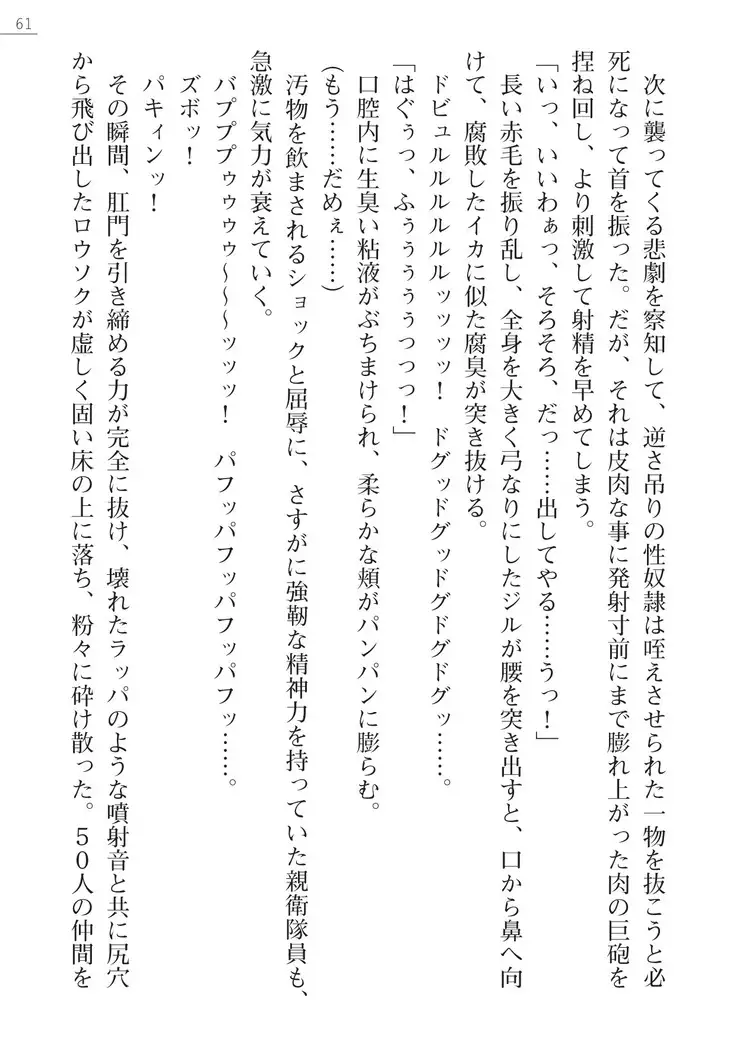 61
　次に襲ってくる悲劇を察知して、逆さ吊りの性奴隷は咥えさせられた一物を抜こうと必
死になって首を振った。だが、それは皮肉な事に発射寸前にまで膨れ上がった肉の巨砲を
捏ね回し、より刺激して射精を早めてしまう。
「いっ、いいわぁっ、そろそろ、だっ……出してやる……うっ！」
　長い赤毛を振り乱し、全身を大きく弓なりにしたジルが腰を突き出すと、口から鼻へ向
けて、腐敗したイカに似た腐臭が突き抜ける。
　ドビュルルルルルルッッッッ！　ドグッドグッドグドグドグッ……。
「はぐぅっ、ふぅぅぅぅぅっっっ！」
　口腔内に生臭い粘液がぶちまけられ、柔らかな頬がパンパンに膨らむ。
（もう……だめぇ……）
　汚物を飲まされるショックと屈辱に、さすがに強靭な精神力を持っていた親衛隊員も、
急激に気力が衰えていく。
　バプププゥゥゥゥ～～～ッッッ！　パフッパフッパフッパフッ……。
　ズボッ！
　パキィンッ！
　その瞬間、肛門を引き締める力が完全に抜け、壊れたラッパのような噴射音と共に尻穴
から飛び出したロウソクが虚しく固い床の上に落ち、粉々に砕け散った。５０人の仲間を